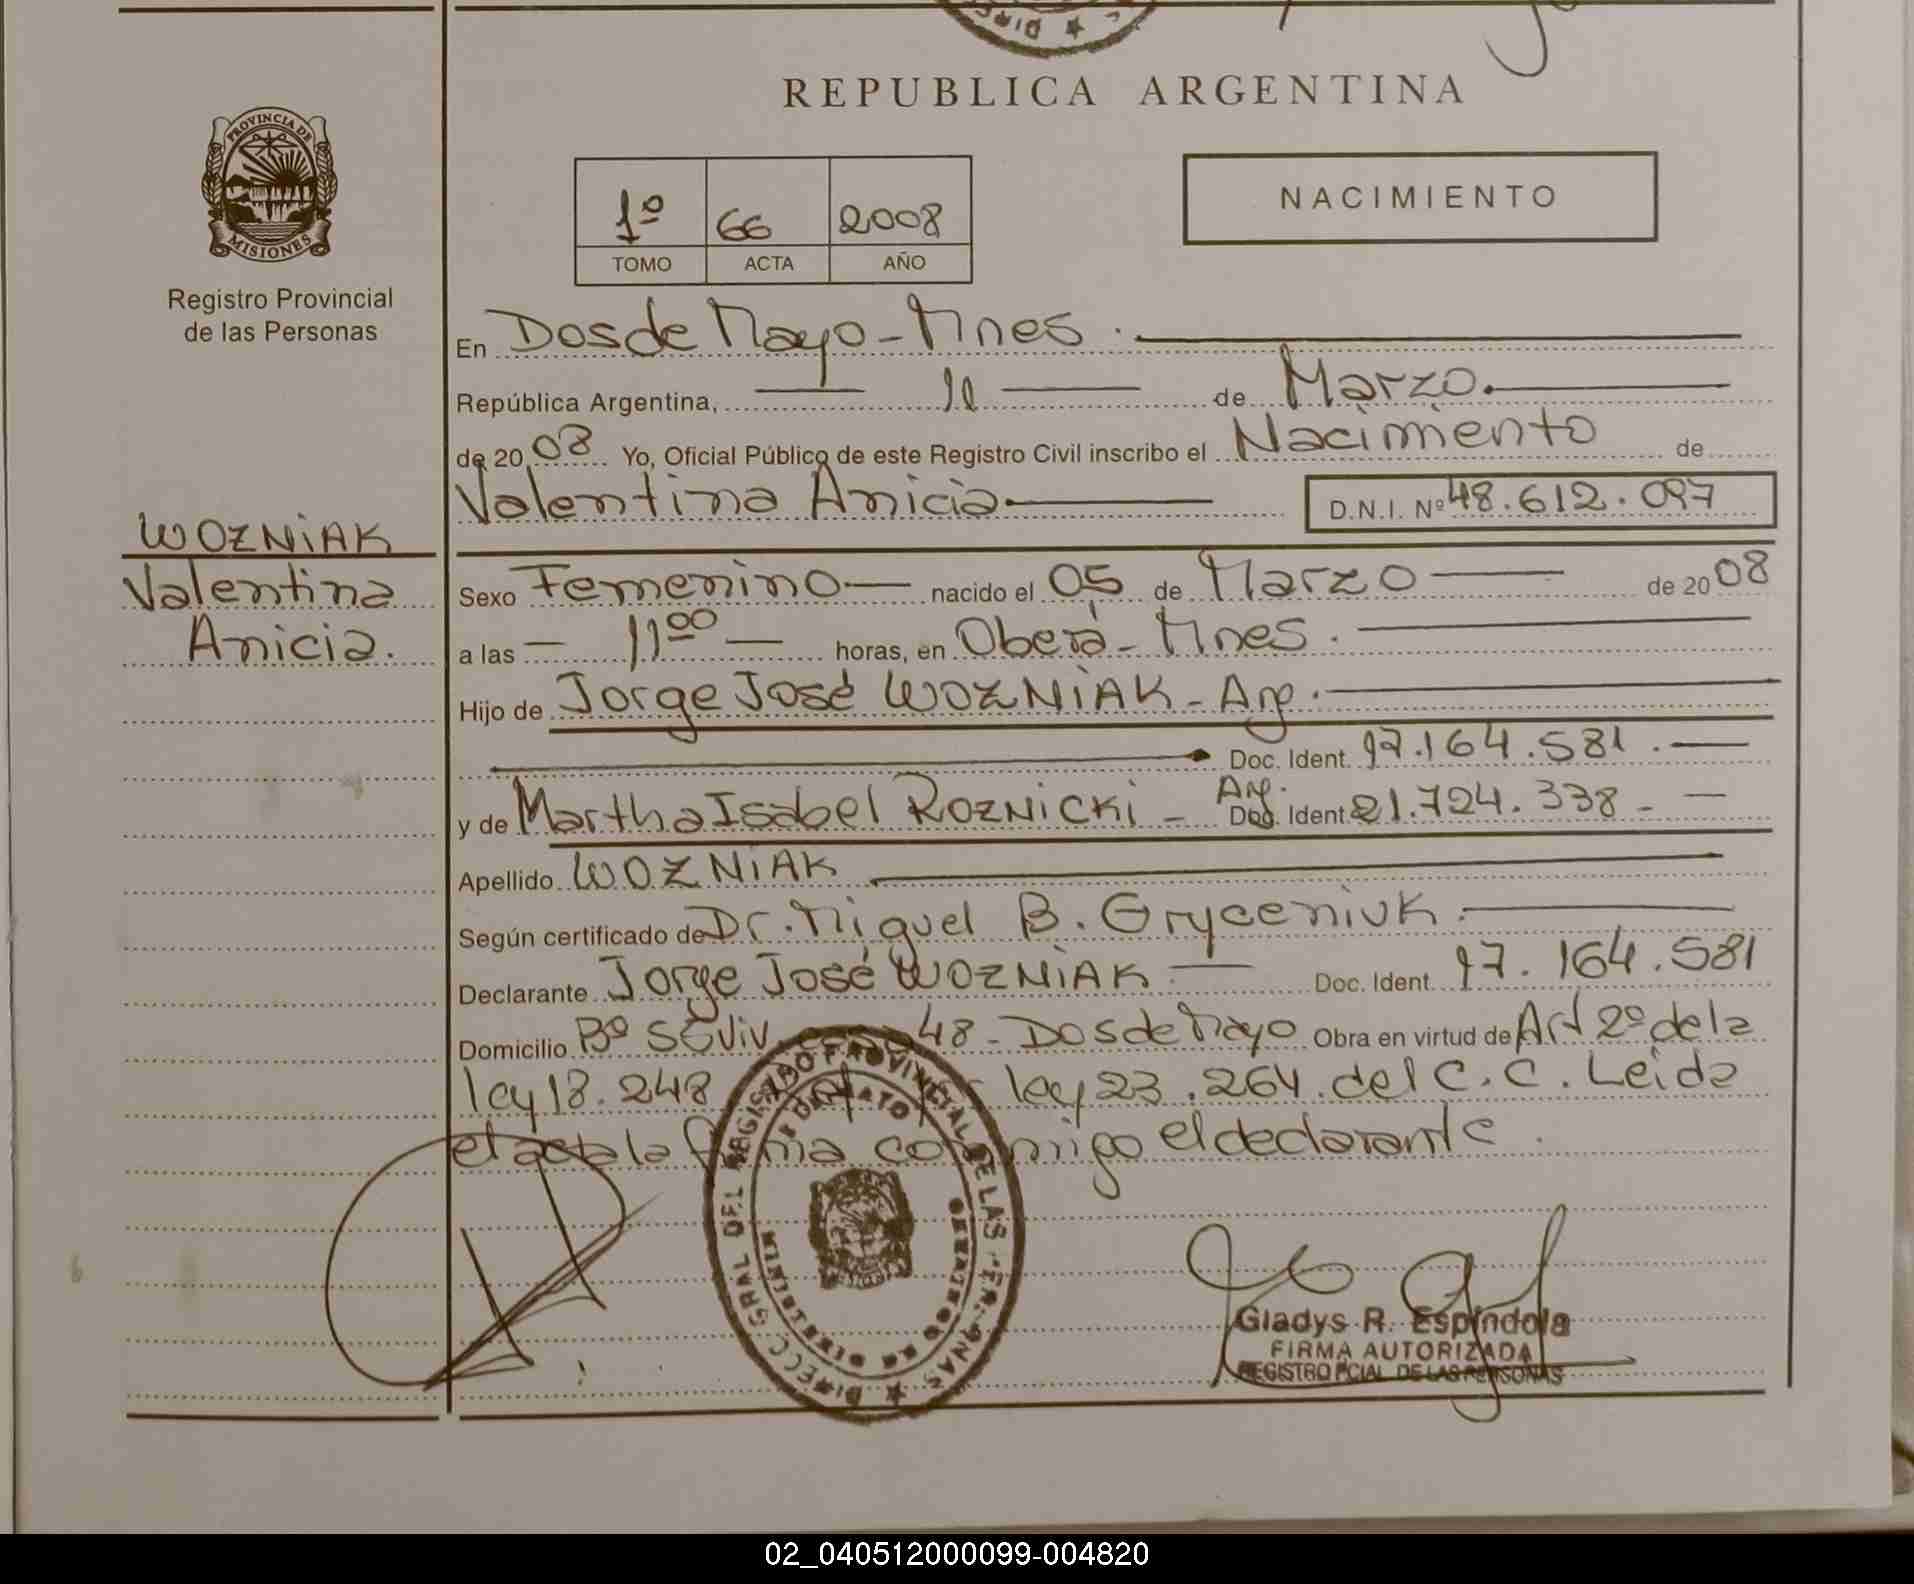 REPUBLICA ARGENTINA
PROVINCIA DE
MISIONES
Registro Provincial
de las Personas
1º 66 2008
TOMO ACTA AÑO
NACIMIENTO
En Dos de Mayo - Mnes.
República Argentina, 11 de Marzo.
de 20 08 Yo, Oficial Público de este Registro Civil inscribo el Nacimiento de
Valentina Anicia D.N.I. Nº 48.612.097
WOZNiAK
Valentina
Anicia.
Sexo Femenino nacido el 05 de Marzo de 20 08
a las 11 00 horas, en Oberá - Mnes.
Hijo de Jorge José WOZNiAK - Arg.
Doc. Ident. 17.164.581.
y de Martha Isabel ROZNICKi - Arg. Doc. Ident. 21.724.338 -
Apellido WOZNiAK
Según certificado de Dr. Miguel B. Gryceniuk.
Declarante Jorge José WOZNiAK Doc. Ident. 17.164.581
Domicilio Bº 50 Viv. 48 - Dos de Mayo Obra en virtud de Art 2º de la
ley 18.248 ley 23.264 del C.C. Leida
el acta la firma conmigo el declarante.
DIRECC. GRAL. DEL REGISTRO PROVINCIAL DE LAS PERSONAS
Gladys R. Espíndola
FIRMA AUTORIZADA
REGISTRO PCIAL. DE LAS PERSONAS
02_040512000099-004820